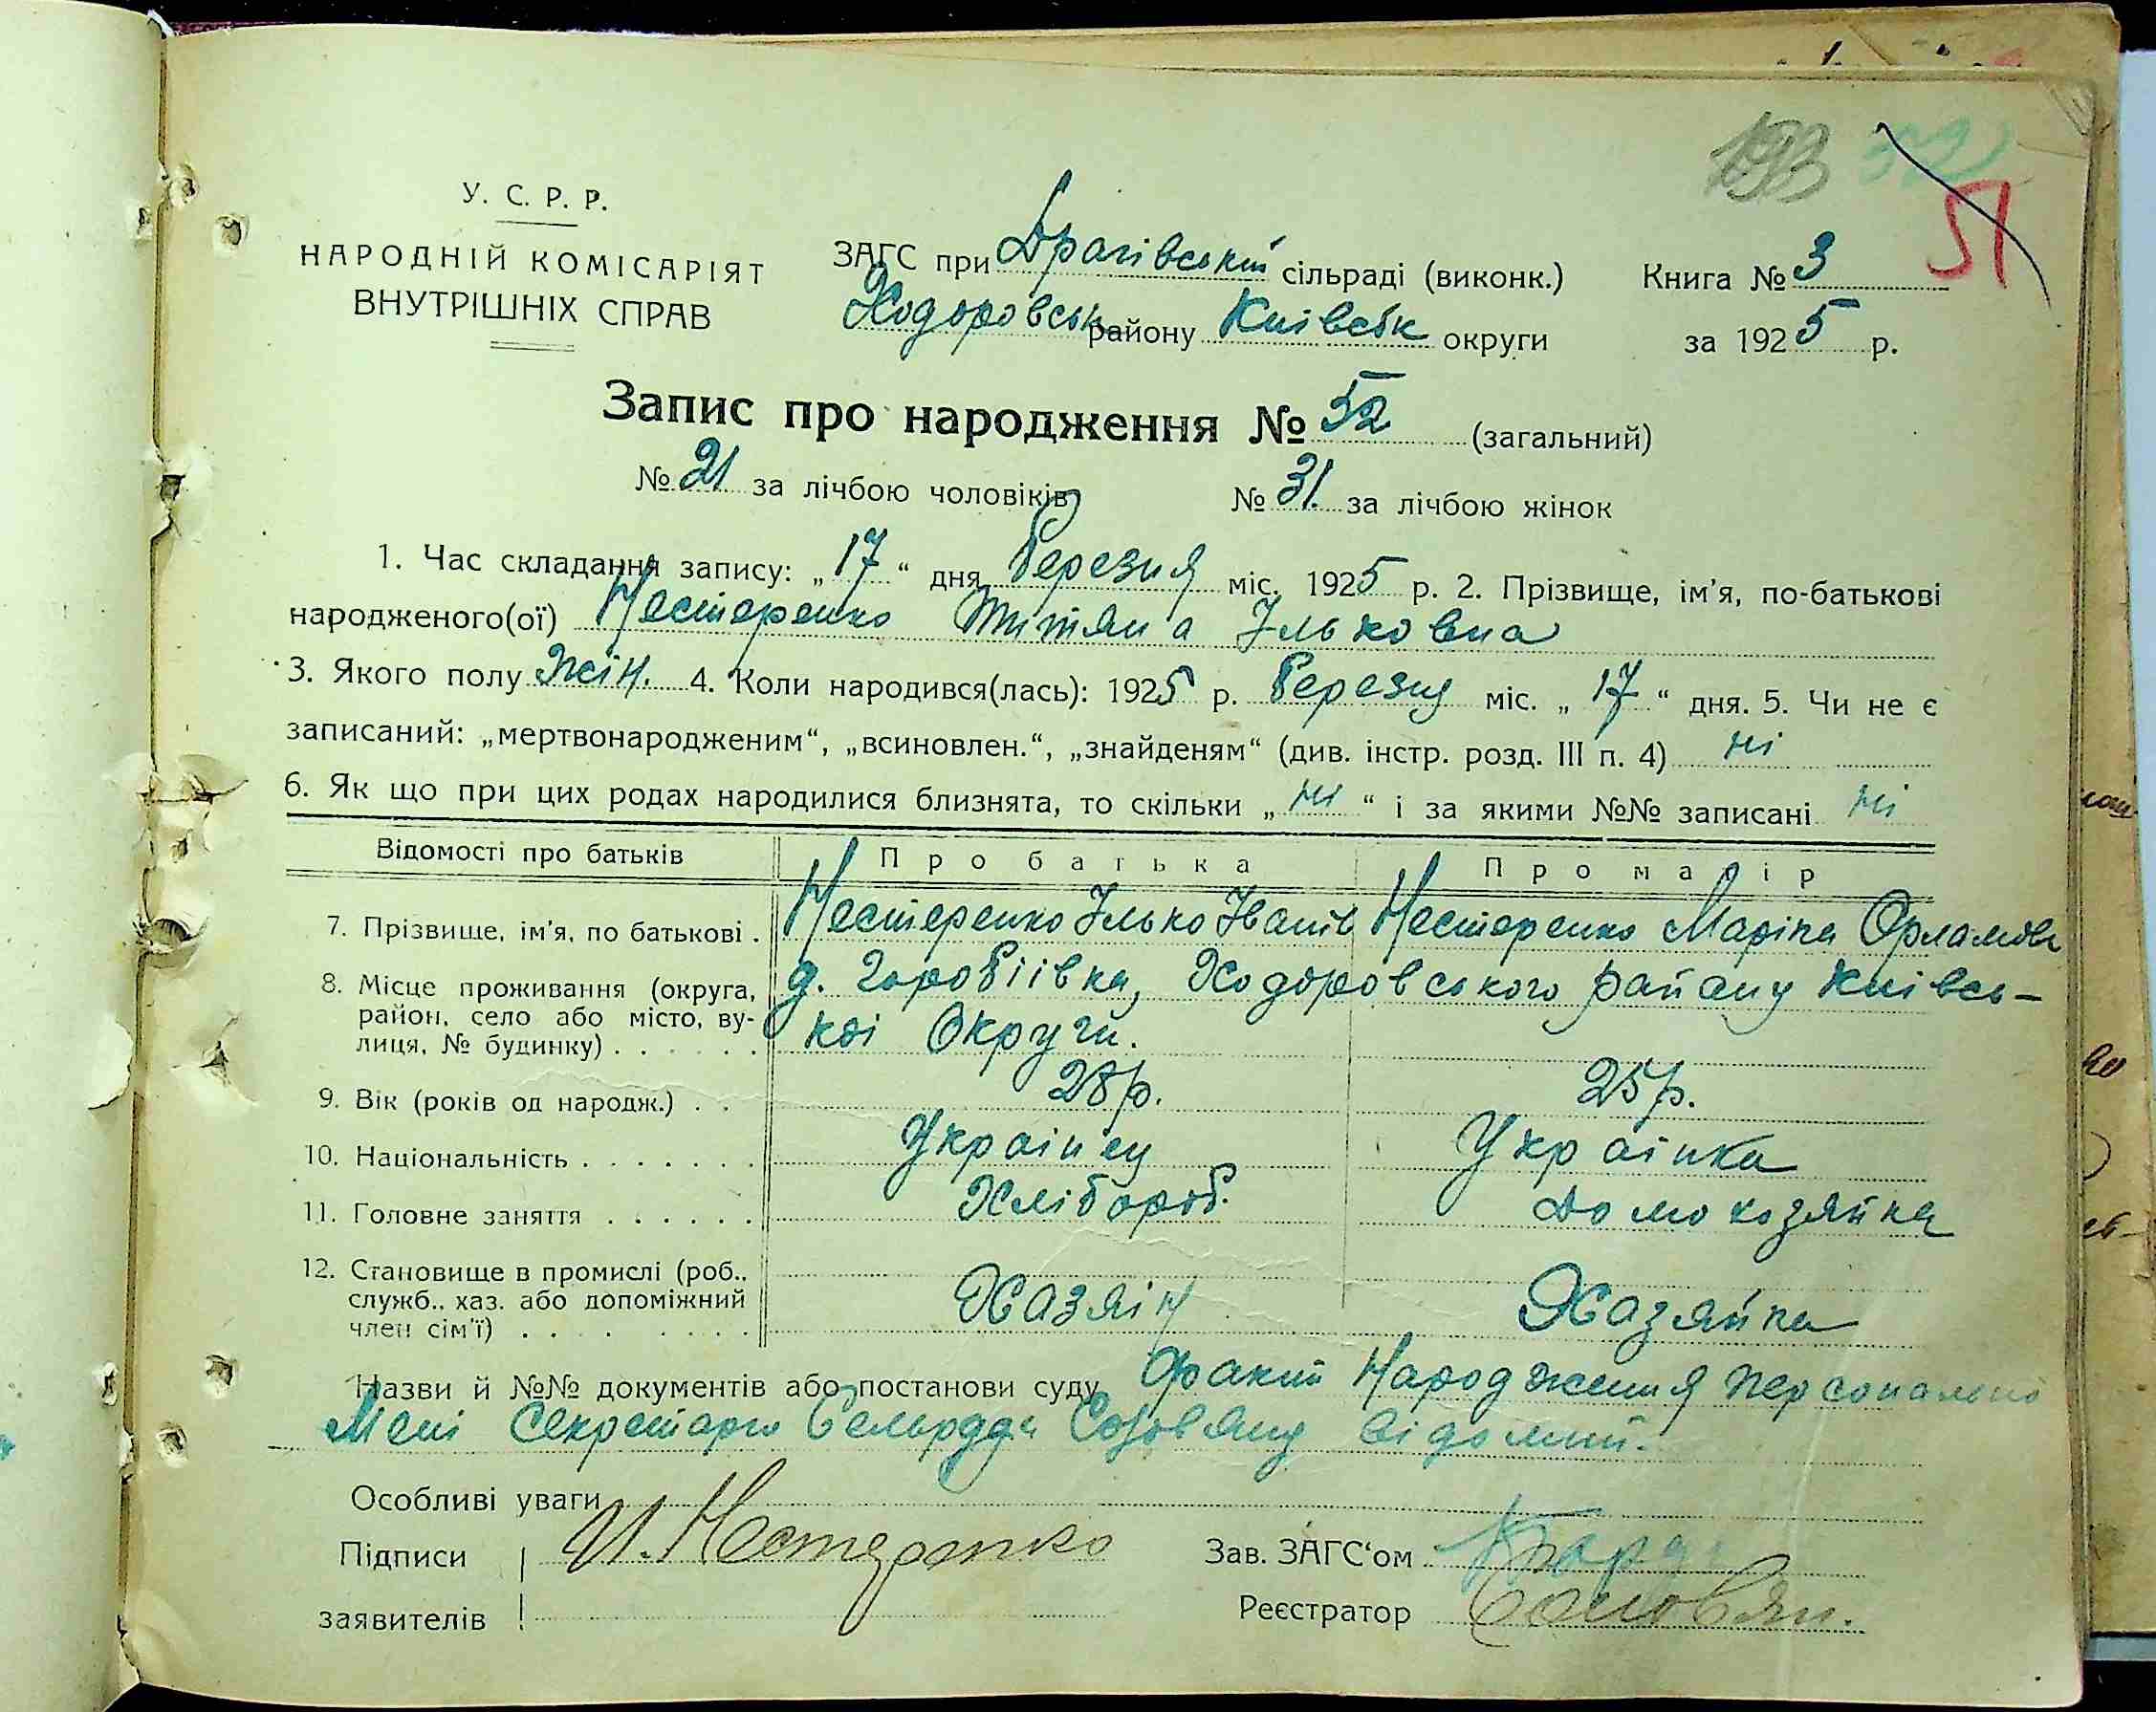 193 32 51
У. С. Р. Р.
НАРОДНІЙ КОМІСАРІЯТ
ВНУТРІШНІХ СПРАВ
ЗАГС при Драчівській сільраді (виконк.) Книга № 3
Ходоровськ району Київськ округи за 1925 р.
Запис про народження № 52 (загальний)
№ 21 за лічбою чоловіків № 31. за лічбою жінок
1. Час складання запису: „17“ дня Березня міс. 1925 р. 2. Прізвище, ім’я, по-батькові
народженого(ої) Нестеренко Титяна Ільковна
3. Якого полу Жін. 4. Коли народився(лась): 1925 р. Березня міс. „17“ дня. 5. Чи не є
записаний: „мертвонародженим“, „всиновлен.“, „знайденям“ (див. інстр. розд. III п. 4) ні
6. Як що при цих родах народилися близнята, то скільки „ні“ і за якими №№ записані ні
Відомості про батьків Про батька Про матір
7. Прізвище, ім’я, по батькові . Нестеренко Ілько Іванів Нестеренко Маріна
8. Місце проживання (округа, район, село або місто, вулиця, № будинку) . . . . . . д. Горобіівка, Ходоровського району Київсь-
коі Округи.
9. Вік (років од народж.) . . 28 р. 25 р.
10. Національність . . . . . . . Украінец Украінка
11. Головне заняття . . . . . . Хлібороб. Домохозяйка
12. Становище в промислі (роб., служб., хаз. або допоміжний член сім’ї) . . . . . . . . Хазяін Хазяйка
Назви й №№ документів або постанови суду Факт Народження персонально
Мені Секретарю Сельради відомий.
Особливі уваги
Підписи И. Нестеренко Зав. ЗАГС‘ом
заявителів Реєстратор